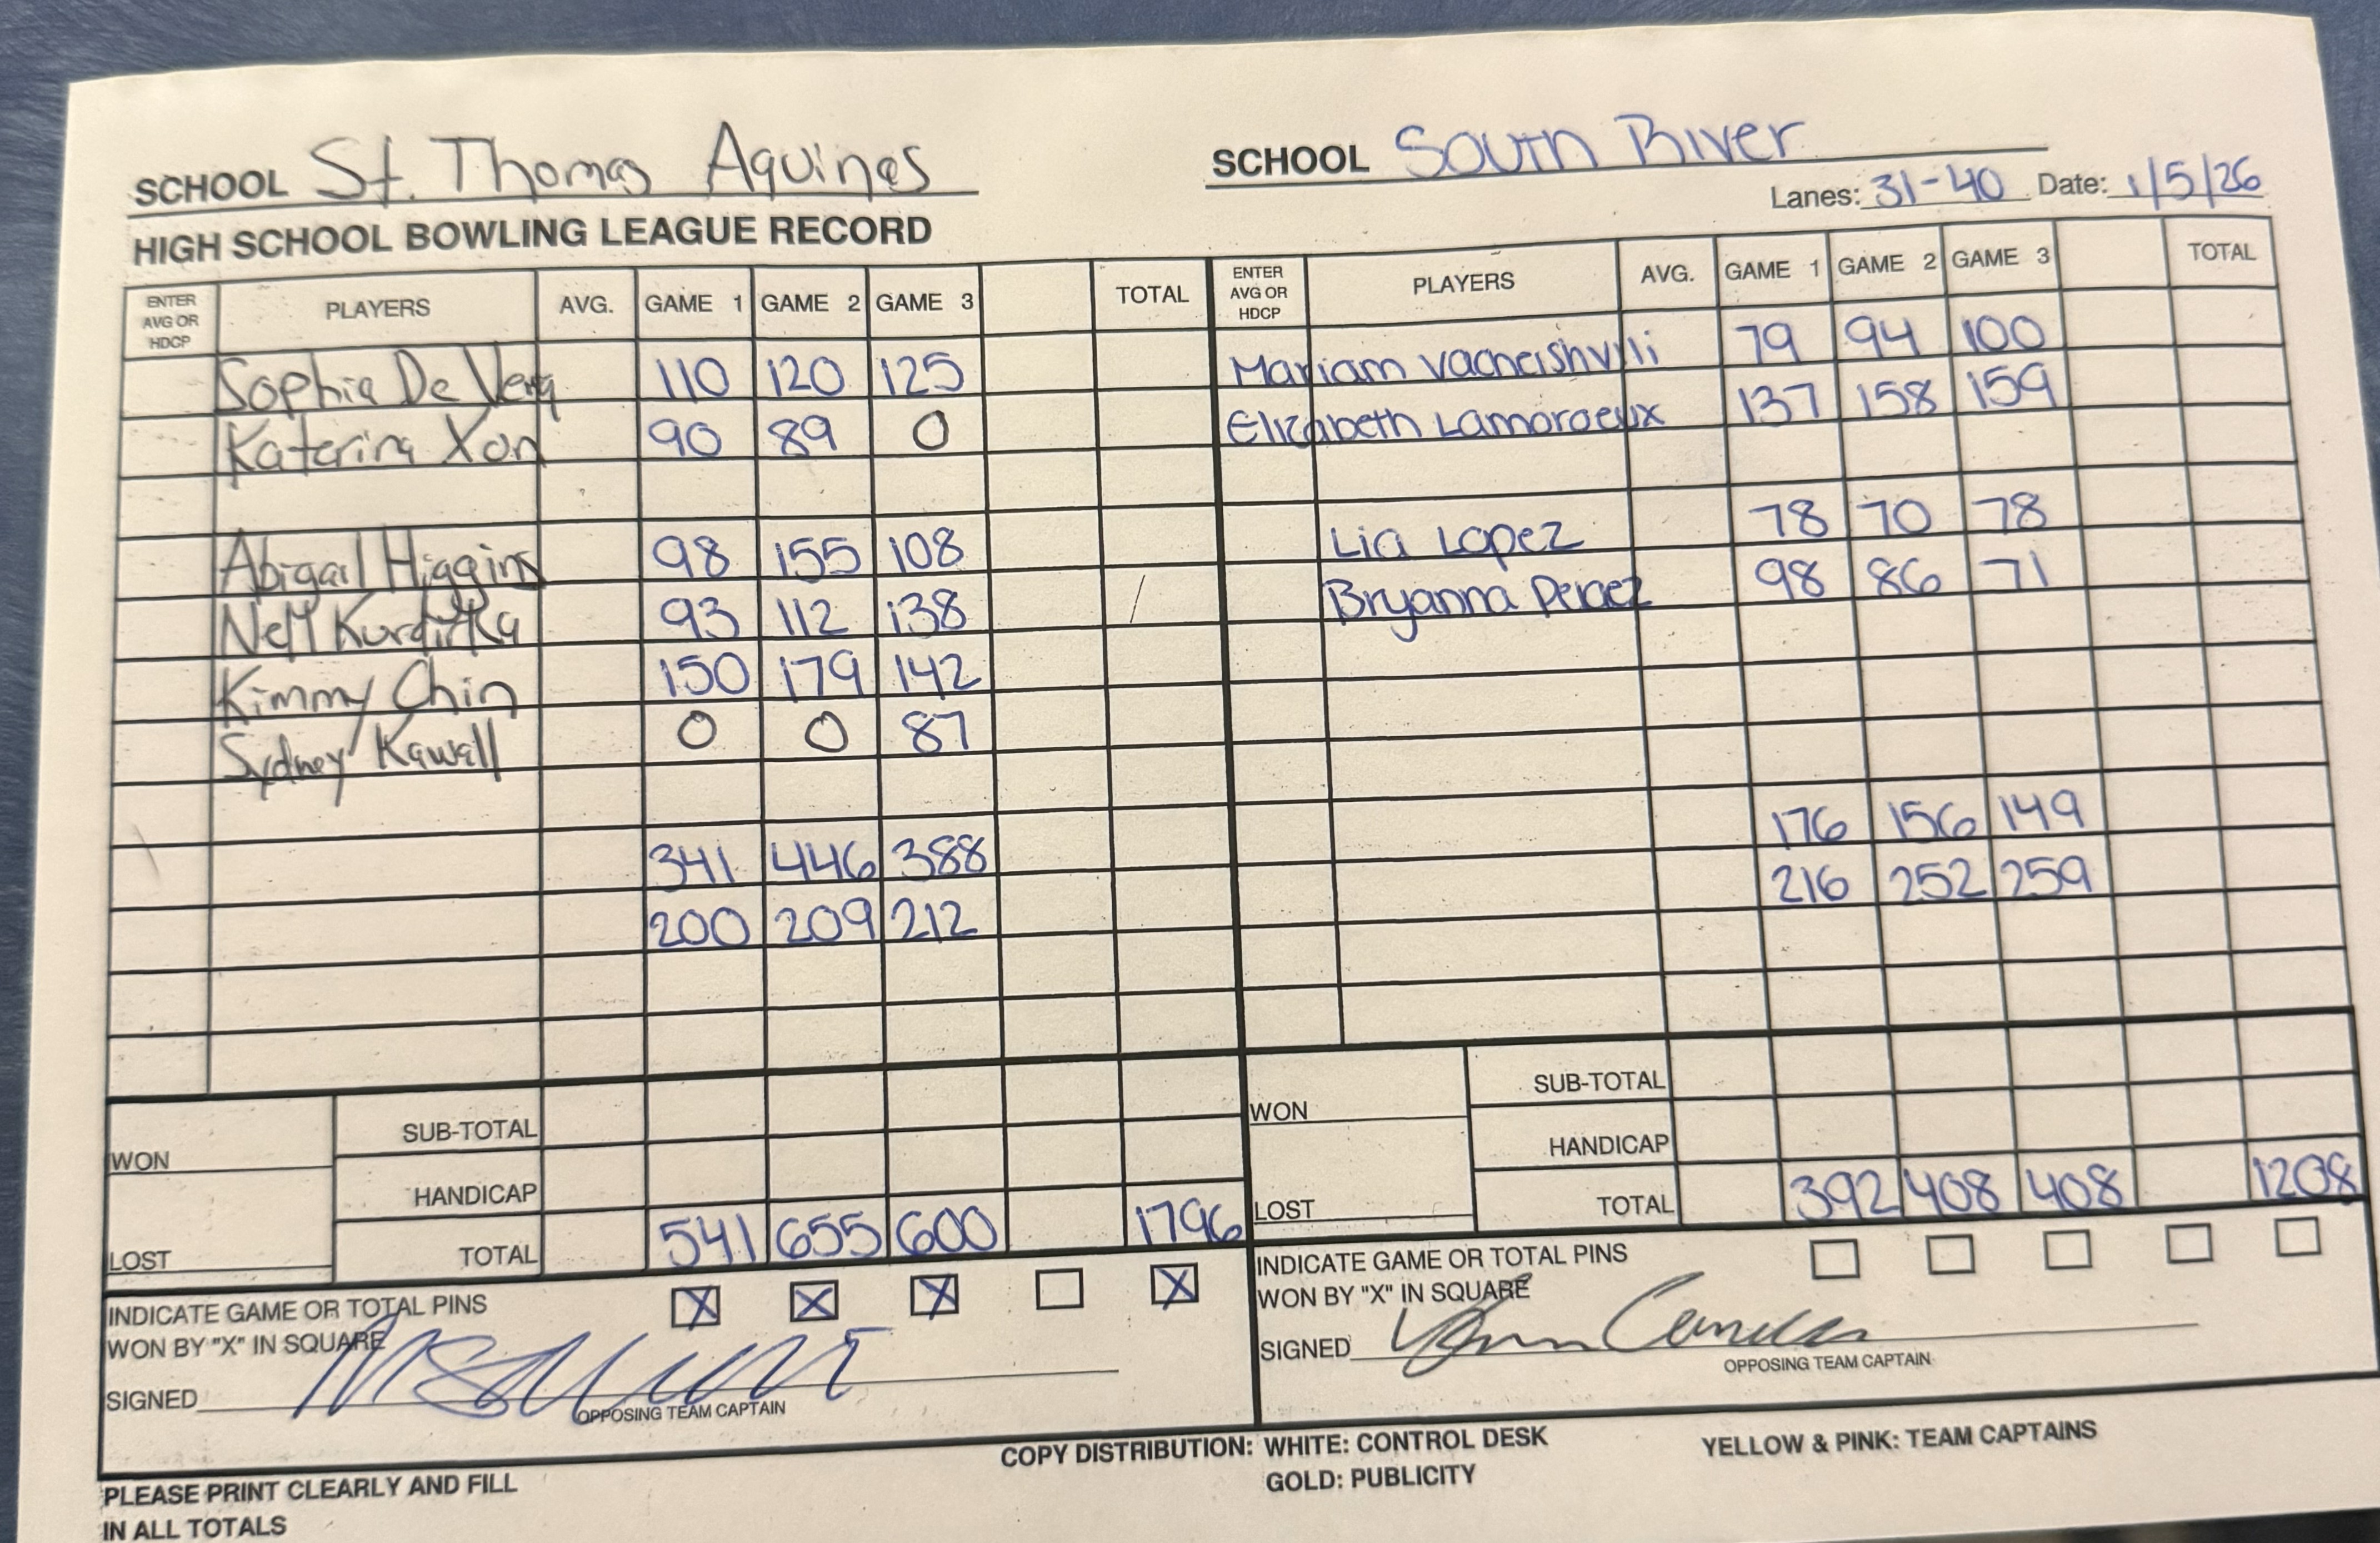 SCHOOL St. Thomas Aquinas
SCHOOL South River
Lanes: 31-40 Date: 1/5/26
HIGH SCHOOL BOWLING LEAGUE RECORD
ENTER AVG OR HDCP PLAYERS AVG. GAME 1 GAME 2 GAME 3 TOTAL
Sophia De Vera 110 120 125
Katerina Xon 90 89 0
Abigail Higgins 98 155 108
93 112 138
Kimmy Chin 150 179 142
Sydney Kawall 0 0 87
341 446 388
200 209 212
WON
SUB-TOTAL
HANDICAP
LOST
TOTAL 541 655 600 1796
INDICATE GAME OR TOTAL PINS
WON BY "X" IN SQUARE X X X X
SIGNED
OPPOSING TEAM CAPTAIN
ENTER AVG OR HDCP PLAYERS AVG. GAME 1 GAME 2 GAME 3 TOTAL
Mariam 79 94 100
Elizabeth Lamoraeux 137 158 159
Lia Lopez 78 70 78
Bryanna 98 86 71
176 156 149
216 252 259
WON
SUB-TOTAL
HANDICAP
LOST
TOTAL 392 408 408 1208
INDICATE GAME OR TOTAL PINS
WON BY "X" IN SQUARE
SIGNED
OPPOSING TEAM CAPTAIN
COPY DISTRIBUTION: WHITE: CONTROL DESK
GOLD: PUBLICITY
YELLOW & PINK: TEAM CAPTAINS
PLEASE PRINT CLEARLY AND FILL
IN ALL TOTALS